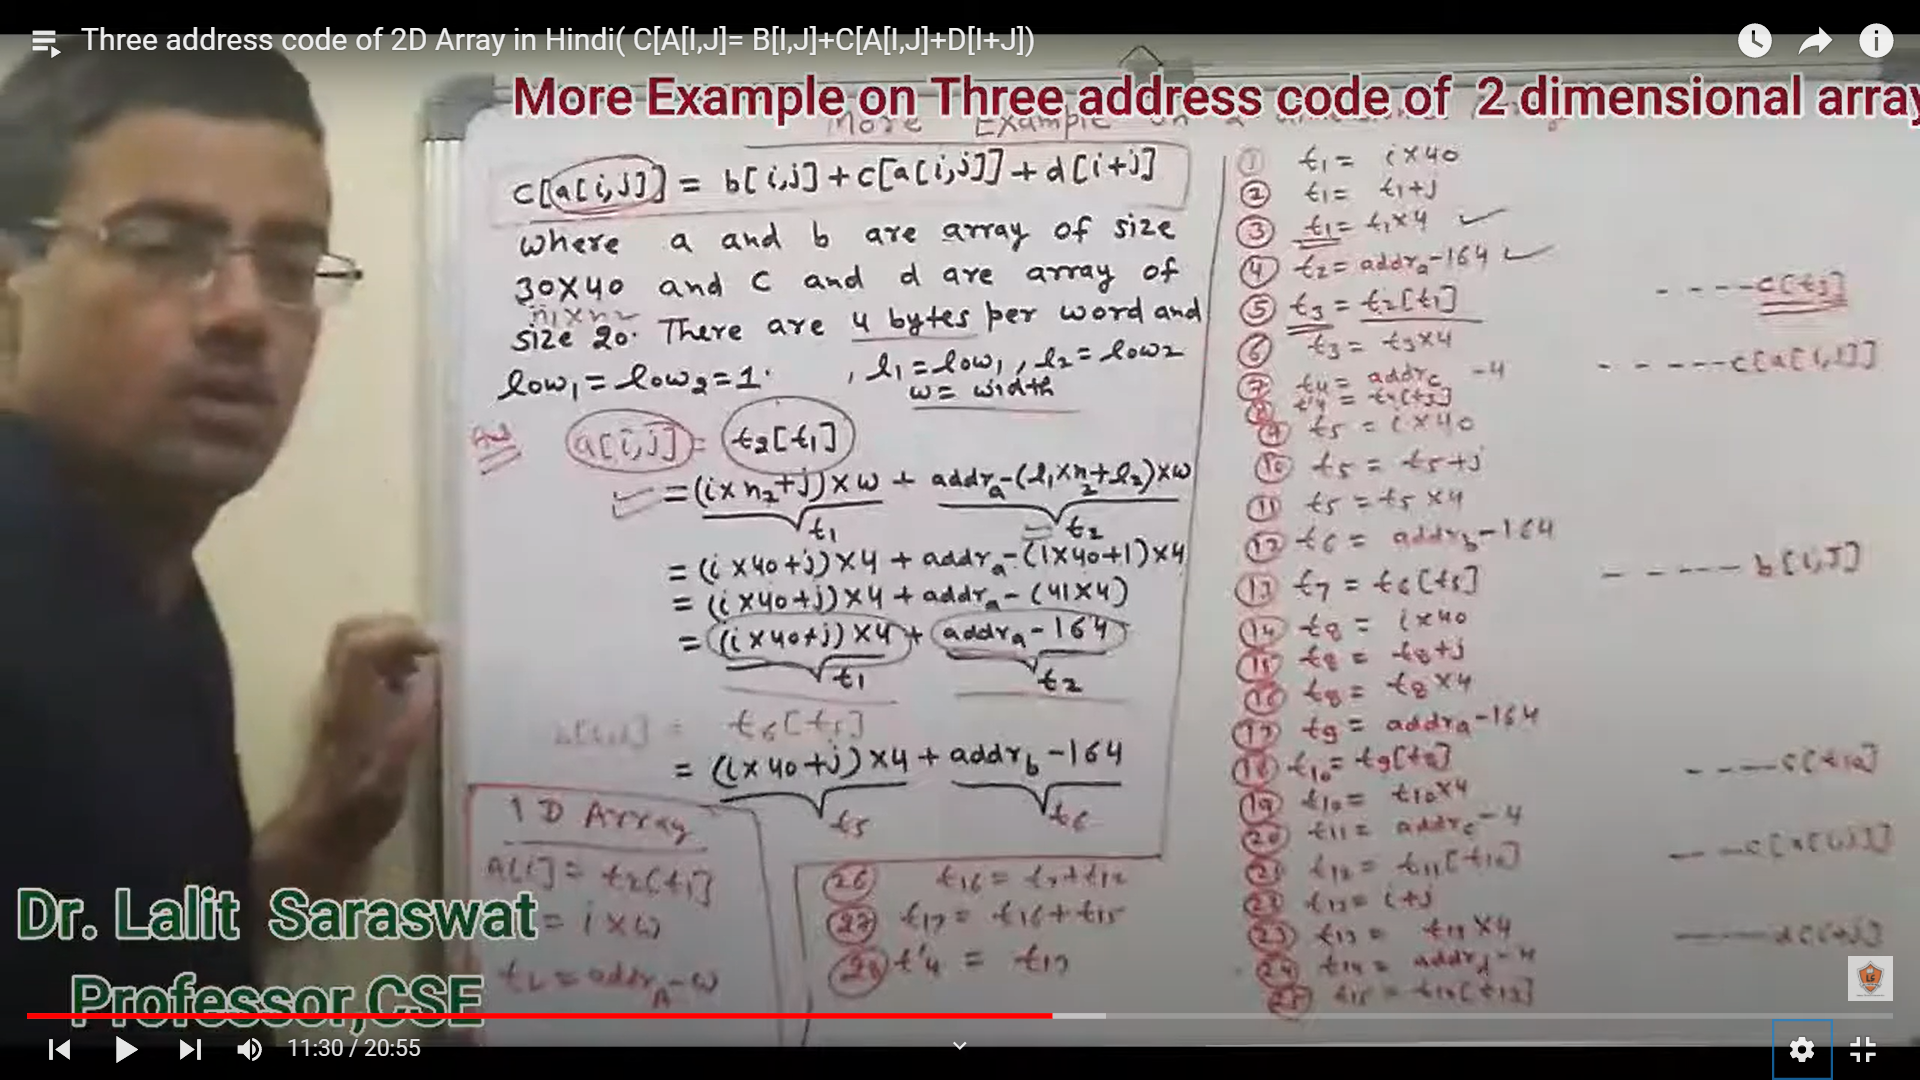 Three address code of 2D Array in Hindi( C[A[I,J]= B[I,J]+C[A[I,J]+D[I+J])
More Example on Three address code of 2 dimensional array
More Example on
c[a[i,j]] = b[i,j] + c[a[i,j]] + d[i+j]
where a and b are array of size
30X40 and C and d are array of
n1 x n2
size 20. There are 4 bytes per word and
low1 = low2 = 1. , l1 = low1, l2 = low2
w = width
Ans a[i,j] = t2[t1]
= (i x n2 + j) x w + addra - (l1 x n2 + l2) x w
t1 t2
= (i x 40 + j) x 4 + addra - (1 x 40 + 1) x 4
= (i x 40 + j) x 4 + addra - (41 x 4)
= (i x 40 + j) x 4 + addra - 164
t1 t2
b[i,j] = t6[t5]
= (i x 40 + j) x 4 + addrb - 164
t5 t6
1 D Array
a[i] = t2[t1]
= i x w
t2 = addrA - w
26 t16 = t7 + t12
27 t17 = t16 + t15
28 t'4 = t17
1 t1 = i x 40
2 t1 = t1 + j
3 t1 = t1 x 4
4 t2 = addra - 164
5 t3 = t2[t1] - - - - c[t3]
6 t3 = t3 x 4
7 t4 = addrc - 4 - - - - - c[a[i,j]]
8 t'4 = t4[t3]
9 t5 = i x 40
10 t5 = t5 + j
11 t5 = t5 x 4
12 t6 = addrb - 164
13 t7 = t6[t5] - - - - - b[i,j]
14 t8 = i x 40
15 t8 = t8 + j
16 t8 = t8 x 4
17 t9 = addra - 164
18 t10 = t9[t8] - - - - c[t10]
19 t10 = t10 x 4
20 t11 = addrc - 4
21 t12 = t11[t10] - - - c[a[i,j]]
22 t13 = i + j
23 t13 = t13 x 4
24 t14 = addrd - 4 - - - - d[i+j]
25 t15 = t14[t13]
Dr. Lalit Saraswat
Professor,CSE
11:30 / 20:55